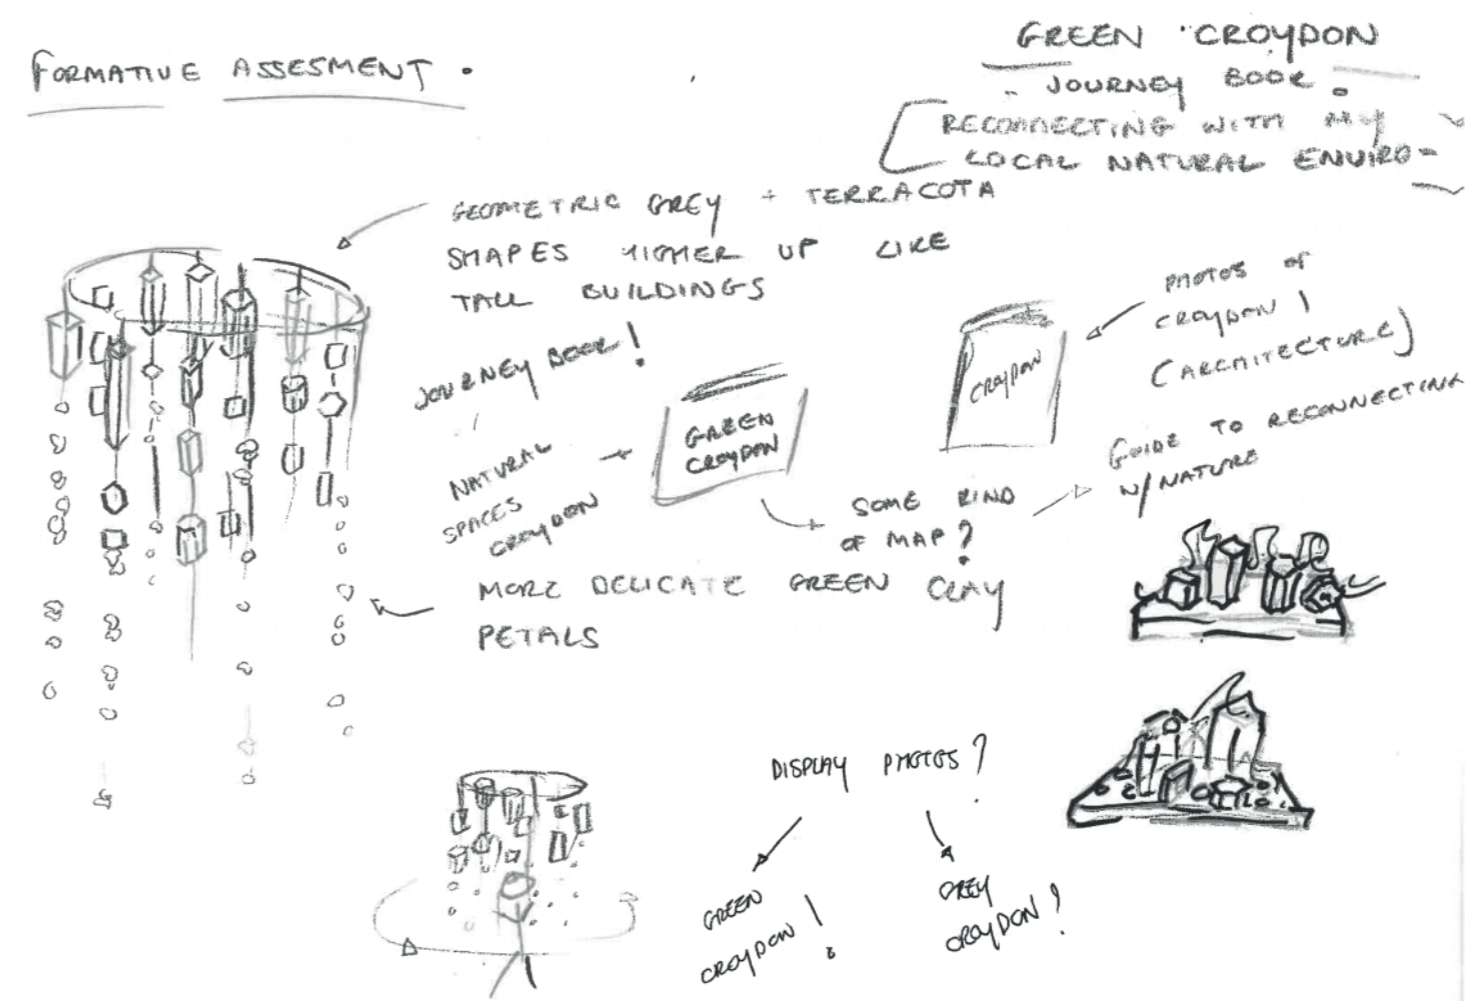 FORMATIVE ASSESMENT .
GREEN CROYDON
JOURNEY BOOK.
RECONNECTING WITH MY
LOCAL NATURAL ENVIRO-
GEOMETRIC GREY + TERRACOTA
SHAPES HIGHER UP LIKE
TALL BUILDINGS
JOURNEY BOOK!
NATURAL
SPACES
CROYDON
GREEN
CROYDON
CROYDON
PHOTOS OF
CROYDON!
(ARCHITECTURE)
GUIDE TO RECONNECTING
W/NATURE
SOME KIND
OF MAP?
MORE DELICATE GREEN CLAY
PETALS
DISPLAY PHOTOS?
GREEN
CROYDON!
GREY
CROYDON?